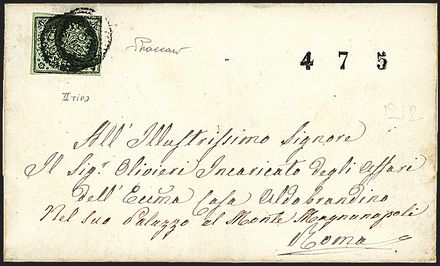 4 7 5
II tipo
All'Illustrissimo Signore
Il Sigr Olivieri Incaricato degli Affari
dell'Eccma Casa Aldobrandino
Nel suo Palazzo al Monte Magnanapoli
Roma